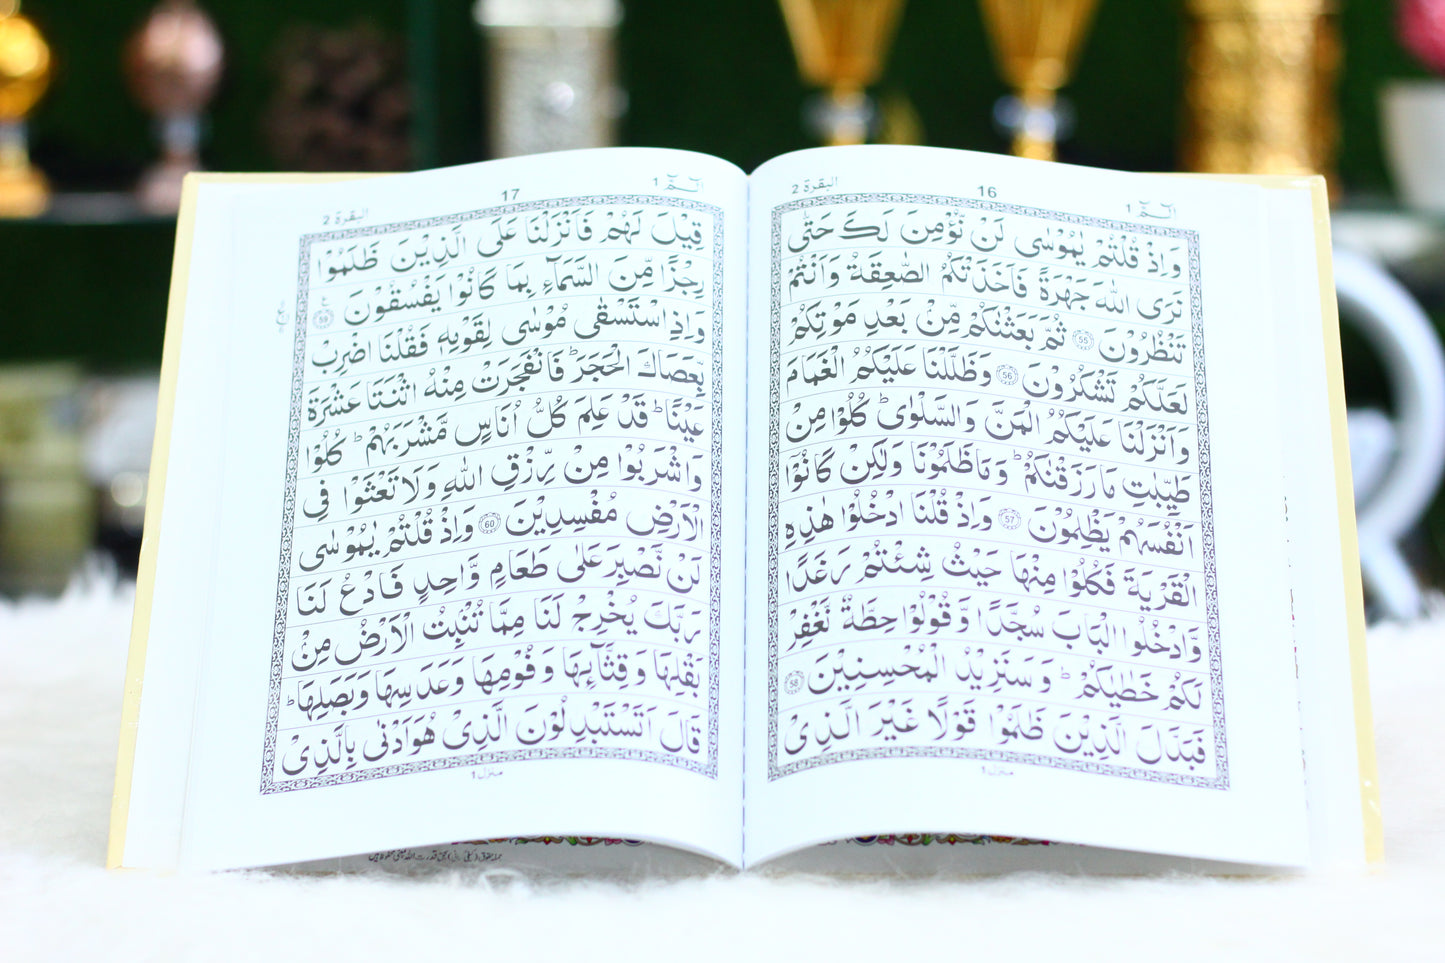 الٓمّٓ 1
16
البقرة 2
وَاِذْ قُلْتُمْ يٰمُوْسٰى لَنْ نُّؤْمِنَ لَكَ حَتّٰى
نَرَى اللّٰهَ جَهْرَةً فَاَخَذَتْكُمُ الصّٰعِقَةُ وَاَنْتُمْ
تَنْظُرُوْنَ 55 ثُمَّ بَعَثْنٰكُمْ مِّنْۢ بَعْدِ مَوْتِكُمْ
لَعَلَّكُمْ تَشْكُرُوْنَ 56 وَظَلَّلْنَا عَلَيْكُمُ الْغَمَامَ
وَاَنْزَلْنَا عَلَيْكُمُ الْمَنَّ وَالسَّلْوٰى ؕ كُلُوْا مِنْ
طَيِّبٰتِ مَا رَزَقْنٰكُمْ ؕ وَمَا ظَلَمُوْنَا وَلٰكِنْ كَانُوْٓا
اَنْفُسَهُمْ يَظْلِمُوْنَ 57 وَاِذْ قُلْنَا ادْخُلُوْا هٰذِهِ
الْقَرْيَةَ فَكُلُوْا مِنْهَا حَيْثُ شِئْتُمْ رَغَدًا
وَّادْخُلُوا الْبَابَ سُجَّدًا وَّقُوْلُوْا حِطَّةٌ نَّغْفِرْ
لَكُمْ خَطٰيٰكُمْ ؕ وَسَنَزِيْدُ الْمُحْسِنِيْنَ 58
فَبَدَّلَ الَّذِيْنَ ظَلَمُوْا قَوْلًا غَيْرَ الَّذِيْ
منزل 1
الٓمّٓ 1
17
البقرة 2
قِيْلَ لَهُمْ فَاَنْزَلْنَا عَلَى الَّذِيْنَ ظَلَمُوْا
رِجْزًا مِّنَ السَّمَآءِ بِمَا كَانُوْا يَفْسُقُوْنَ 59
وَاِذِ اسْتَسْقٰى مُوْسٰى لِقَوْمِهٖ فَقُلْنَا اضْرِبْ
بِّعَصَاكَ الْحَجَرَ ؕ فَانْفَجَرَتْ مِنْهُ اثْنَتَا عَشْرَةَ
عَيْنًا ؕ قَدْ عَلِمَ كُلُّ اُنَاسٍ مَّشْرَبَهُمْ ؕ كُلُوْا
وَاشْرَبُوْا مِنْ رِّزْقِ اللّٰهِ وَلَا تَعْثَوْا فِى
الْاَرْضِ مُفْسِدِيْنَ 60 وَاِذْ قُلْتُمْ يٰمُوْسٰى
لَنْ نَّصْبِرَ عَلٰى طَعَامٍ وَّاحِدٍ فَادْعُ لَنَا
رَبَّكَ يُخْرِجْ لَنَا مِمَّا تُنْۢبِتُ الْاَرْضُ مِنْۢ
بَقْلِهَا وَقِثَّآئِهَا وَفُوْمِهَا وَعَدَسِهَا وَبَصَلِهَا ؕ
قَالَ اَتَسْتَبْدِلُوْنَ الَّذِيْ هُوَ اَدْنٰى بِالَّذِيْ
منزل 1